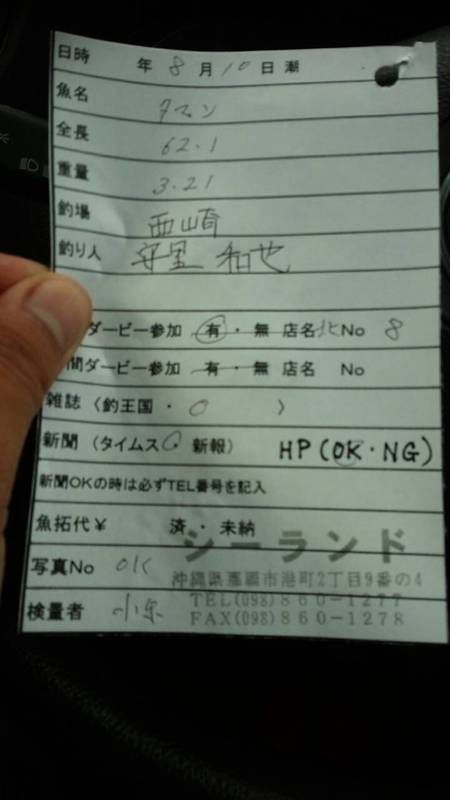 日時 年 8 月 10 日 潮
魚名 タマン
全長 62.1
重量 3.21
釣場 西崎
釣り人 安里 和也
ダービー参加 有・無 店名 北 No 8
間ダービー参加 有・無 店名 No
雑誌〈釣王国・○ 〉
新聞(タイムス・新報) HP(OK・NG)
新聞OKの時は必ずTEL番号を記入
魚拓代¥ 済・未納
シーランド
写真No OK
沖縄県那覇市港町2丁目9番の4
TEL(098)860-1277
検量者
FAX(098)860-1278